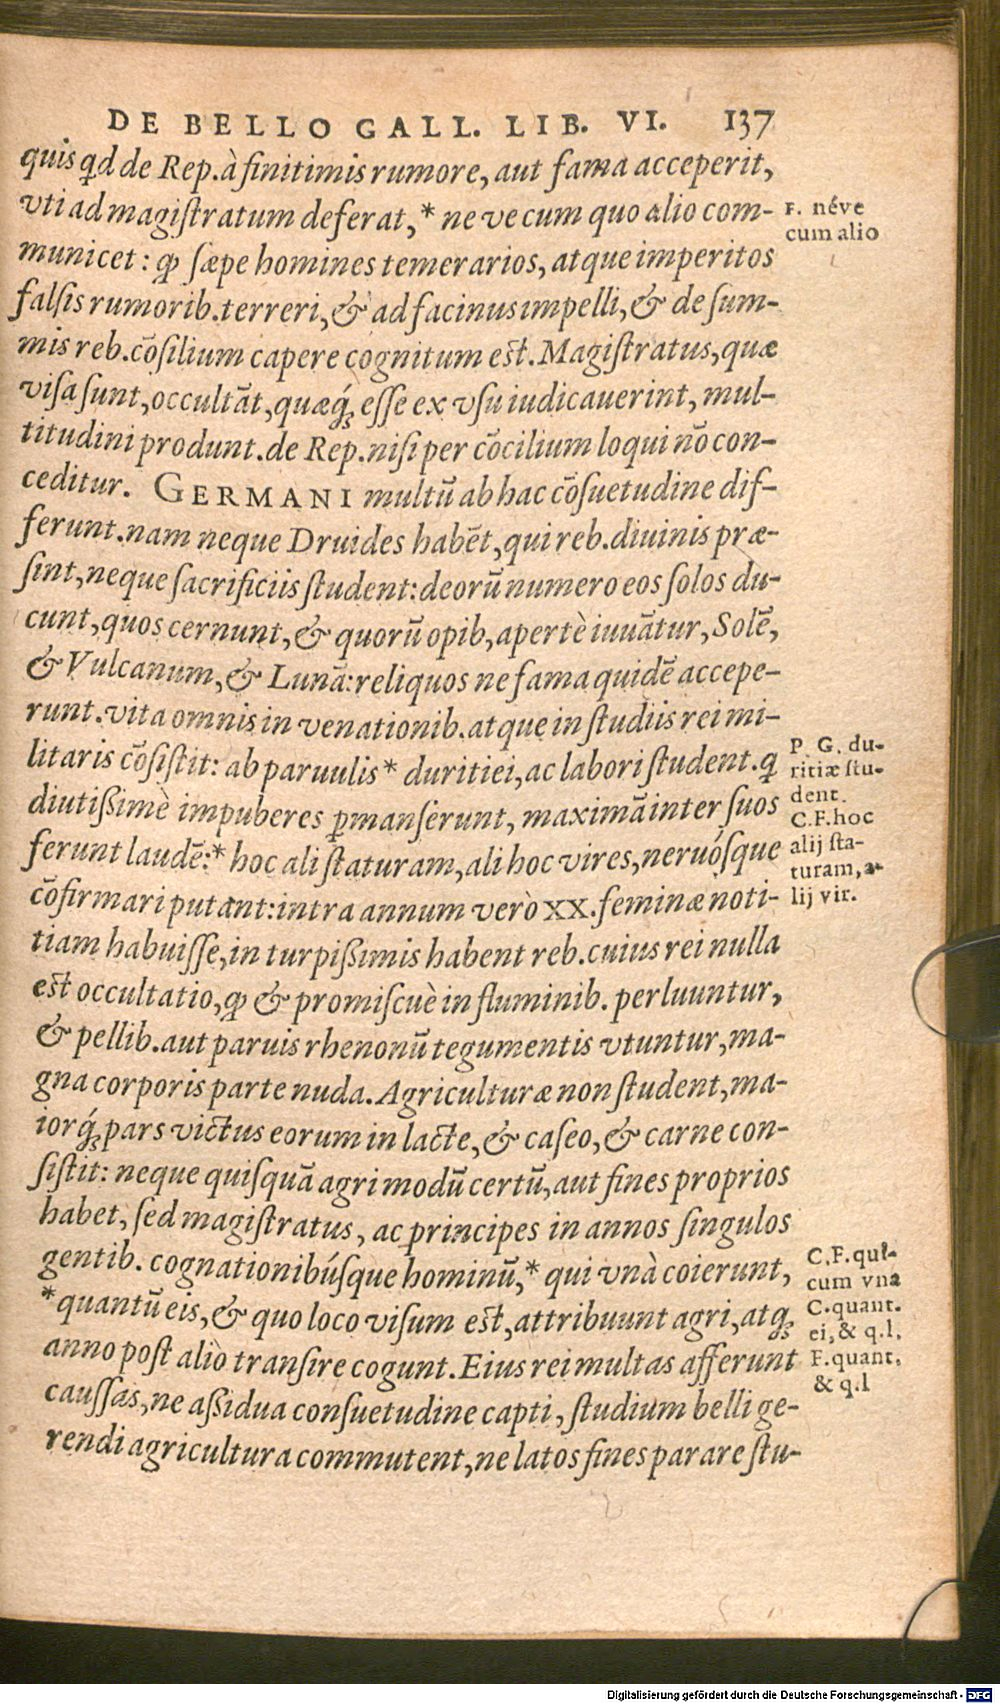 DE BELLO GALL. LIB. VI. 137
quis qd de Rep. à finitimis rumore, aut fama acceperit,
vti ad magiſtratum deferat,* ne ve cum quo alio com-
municet: ꝙ ſæpe homines temerarios, atque imperitos
falſis rumorib. terreri, & ad facinus impelli, & de ſum-
mis reb. cōſilium capere cognitum eſt. Magiſtratus, quæ
viſa ſunt, occultāt, quæq́; eſſe ex vſu iudicauerint, mul-
titudini produnt. de Rep. niſi per cōcilium loqui nō con-
ceditur. GERMANI multū ab hac cōſuetudine dif-
ferunt. nam neque Druides habēt, qui reb. diuinis præ-
ſint, neque ſacrificiis ſtudent: deorū numero eos ſolos du-
cunt, quos cernunt, & quorū opib, apertè iuuātur, Solē,
& Vulcanum, & Lunā: reliquos ne fama quidē accepe-
runt. vita omnis in venationib. atque in ſtudiis rei mi-
litaris cōſiſtit: ab paruulis* duritiei, ac labori ſtudent. q
diutißimè impuberes ꝑmanſerunt, maximā inter ſuos
ferunt laudē:* hoc ali ſtaturam, ali hoc vires, neruósque
cōfirmari putant: intra annum verò XX. feminæ noti-
tiam habuiſſe, in turpißimis habent reb. cuius rei nulla
eſt occultatio, ꝙ & promiſcuè in fluminib. perluuntur,
& pellib. aut paruis rhenonū tegumentis vtuntur, ma-
gna corporis parte nuda. Agriculturæ non ſtudent, ma-
iorq́; pars victus eorum in lacte, & caſeo, & carne con-
ſiſtit: neque quiſquā agri modū certū, aut fines proprios
habet, ſed magiſtratus, ac principes in annos ſingulos
gentib. cognationibúſque hominū,* qui vnà coierunt,
*quantū eis, & quo loco viſum eſt, attribuunt agri, atq;
anno poſt aliò tranſire cogunt. Eius rei multas afferunt
cauſſas, ne aßidua conſuetudine capti, ſtudium belli ge-
rendi agricultura commutent, ne latos fines parare ſtu-
F. néve
cum alio
P. G. du-
ritiæ ſtu-
dent.
C.F.hoc
alij ſta-
turam, a-
lij vir.
C.F.qui-
cum vna
C.quant.
ei, & q.l.
F.quant.
& q.l
Digitalisierung gefördert durch die Deutsche Forschungsgemeinschaft - DFG